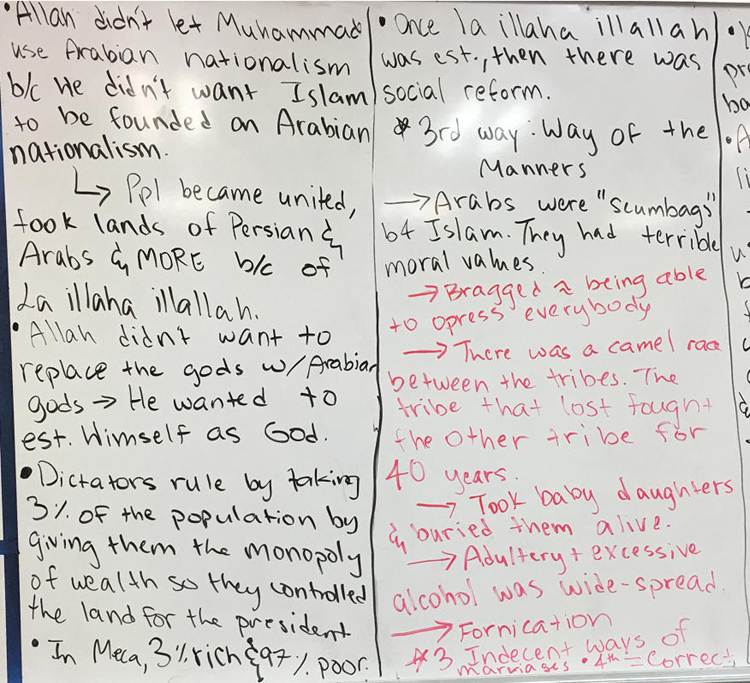 • Allah didn't let Muhammad
use Arabian nationalism
b/c He didn't want Islam
to be founded on Arabian
nationalism.
↳ Ppl became united,
took lands of Persian &
Arabs & MORE b/c of
La illaha illallah.
• Allah didn't want to
replace the gods w/Arabian
gods → He wanted to
est. Himself as God.
• Dictators rule by taking
3% of the population by
giving them the monopoly
of wealth so they controlled
the land for the president
• In Meca, 3% rich & 97% poor.
• Once la illaha illallah
was est., then there was
social reform.
* 3rd way: Way of the
Manners
→ Arabs were "scumbags"
b4 Islam. They had terrible
moral values.
→ Bragged ≈ being able
to opress everybody
→ There was a camel race
between the tribes. The
tribe that lost fought
the other tribe for
40 years.
→ Took baby daughters
& buried them alive.
→ Adultery + excessive
alcohol was wide-spread.
→ Fornication
* 3 Indecent ways of
marriages • 4th = Correct